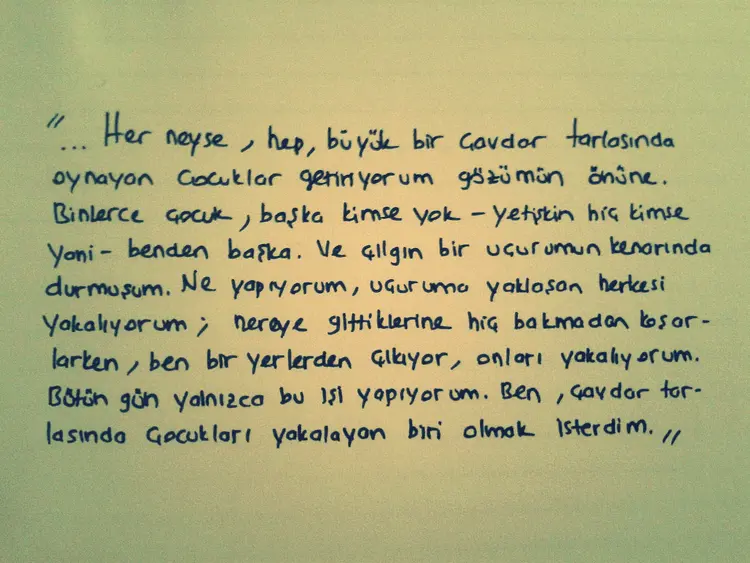 "... Her neyse, hep, büyük bir çavdar tarlasında
oynayan çocuklar getiriyorum gözümün önüne.
Binlerce çocuk, başka kimse yok - yetişkin hiç kimse
yani - benden başka. Ve çılgın bir uçurumun kenarında
durmuşum. Ne yapıyorum, uçuruma yaklaşan herkesi
yakalıyorum; nereye gittiklerine hiç bakmadan koşar-
larken, ben bir yerlerden çıkıyor, onları yakalıyorum.
Bütün gün yalnızca bu işi yapıyorum. Ben, çavdar tar-
lasında çocukları yakalayan biri olmak isterdim."